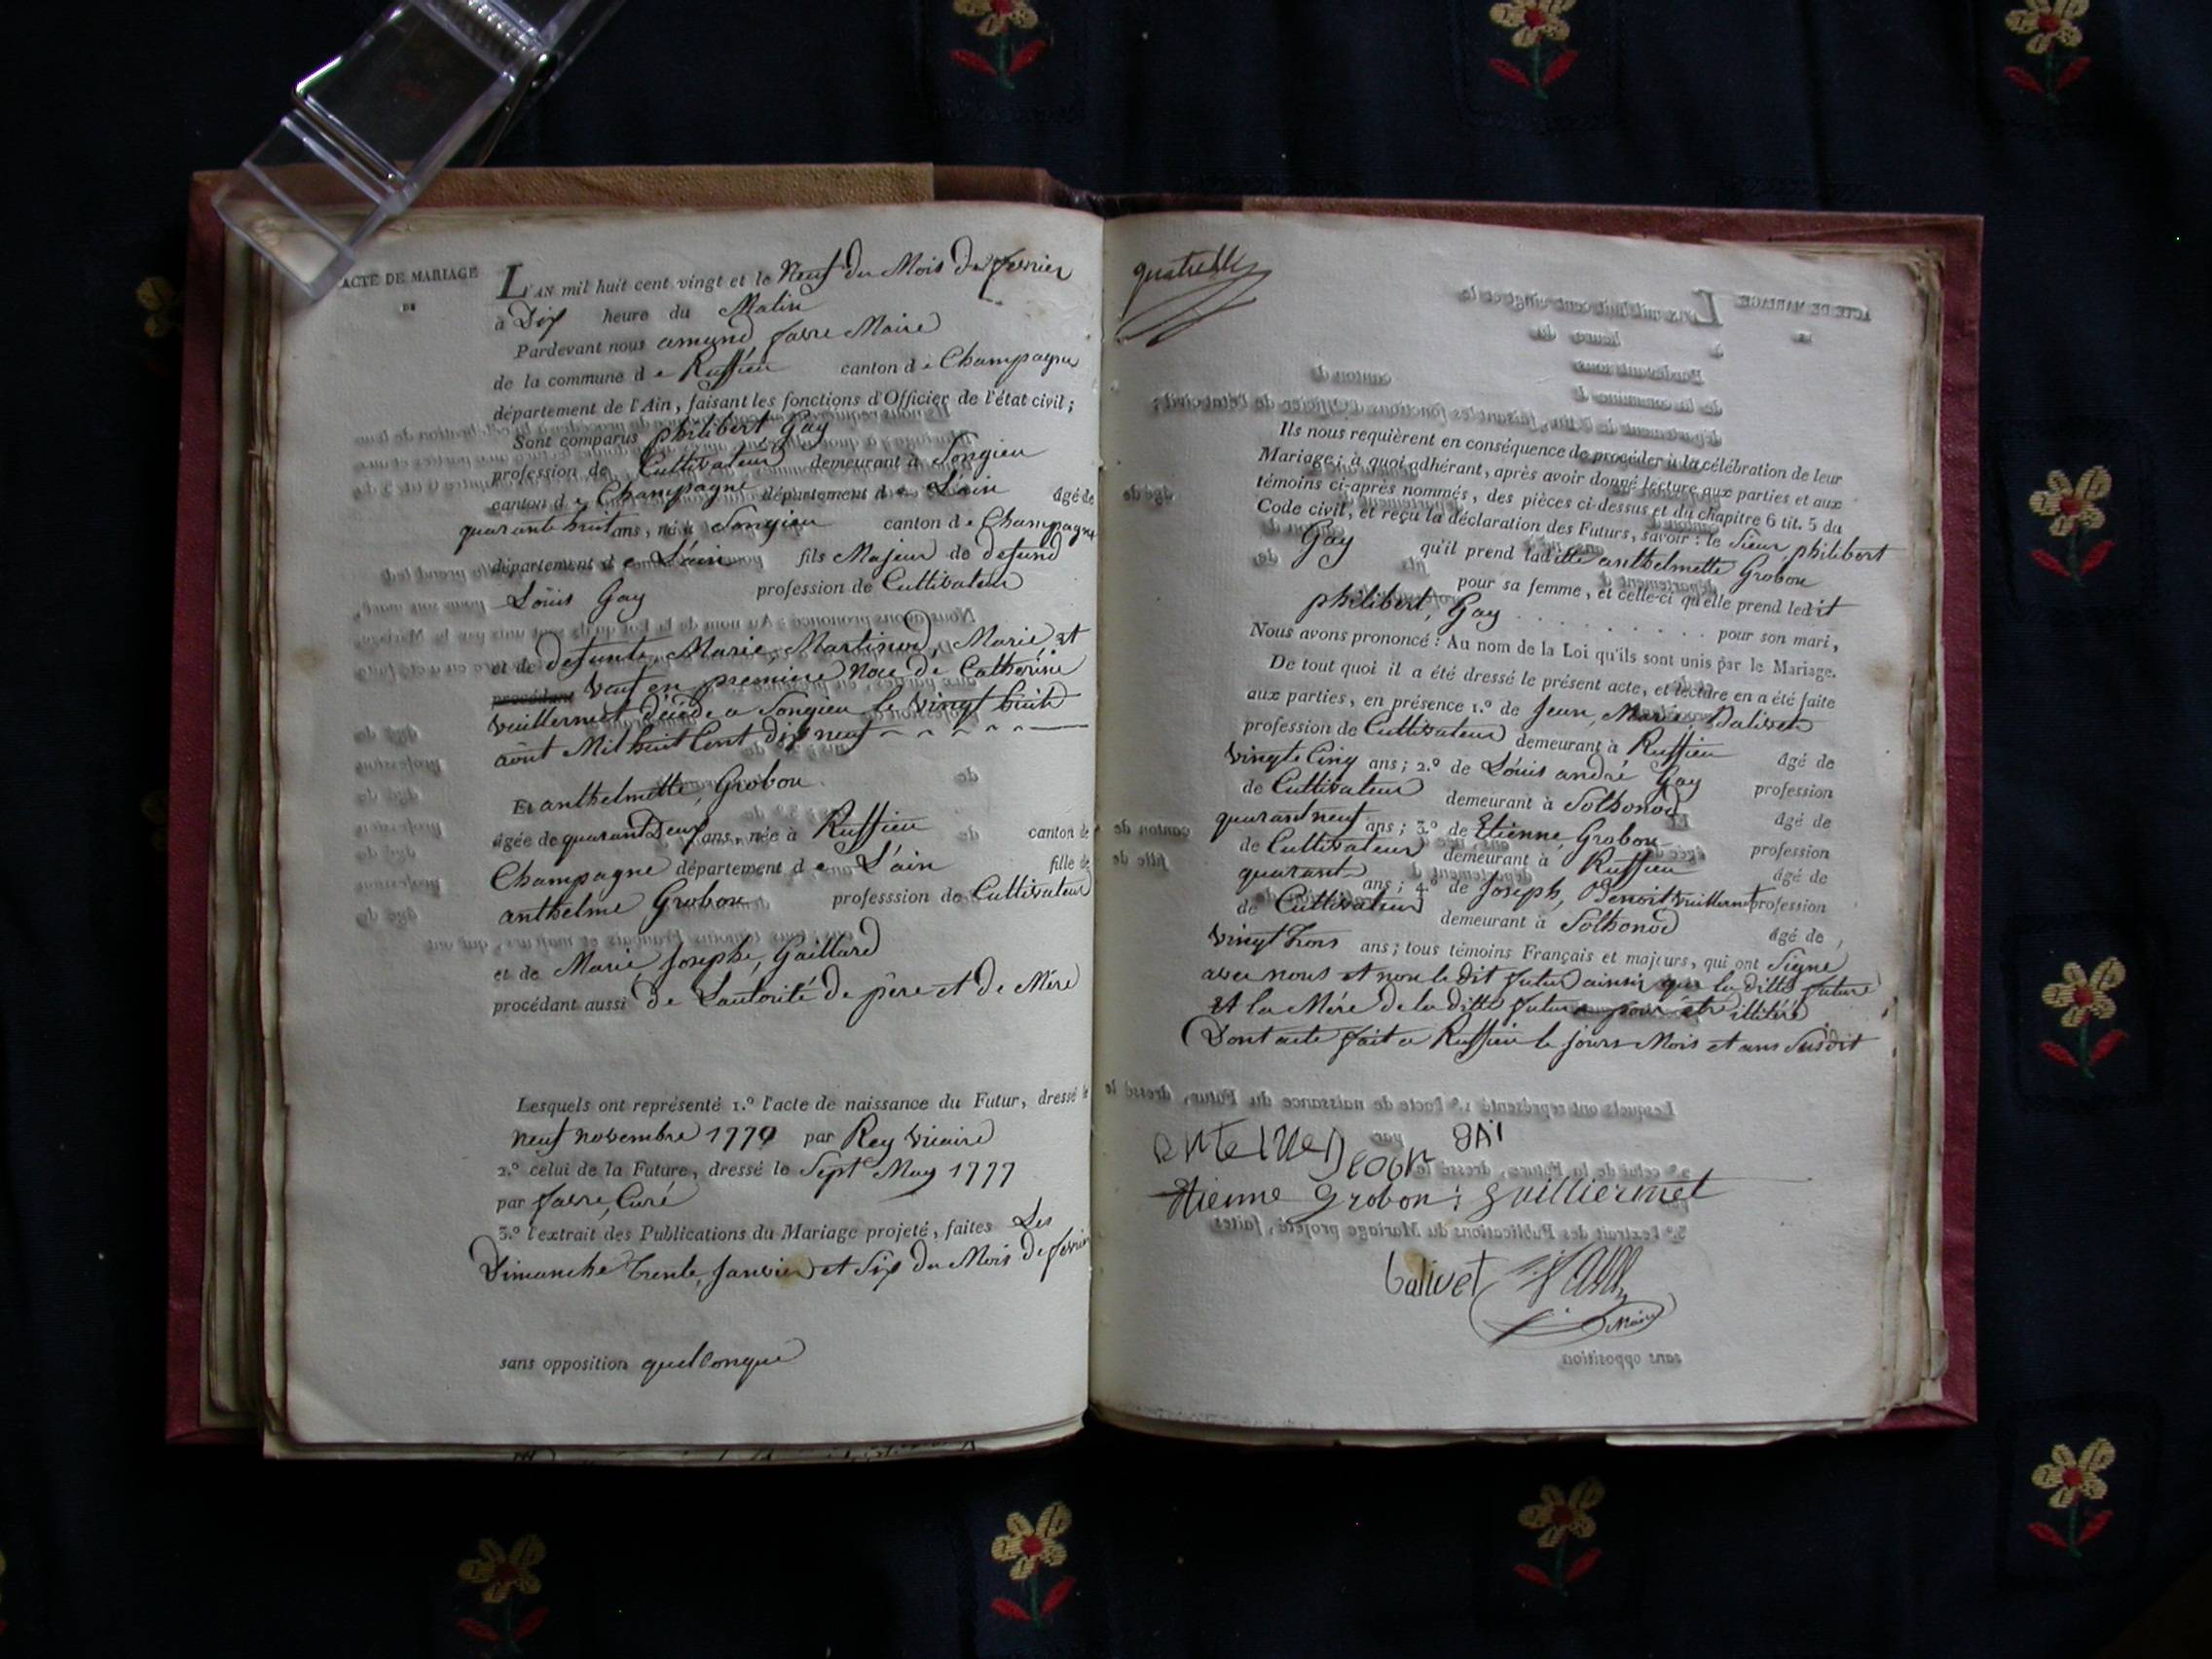 ACTE DE MARIAGE
DE
L'AN mil huit cent vingt et le Neuf du Mois de fevrier
à Dix heure du Matin
Pardevant nous amand favre Maire
de la commune d e Ruffieu canton d e Champagne
département de l'Ain, faisant les fonctions d'Officier de l'état civil;
Sont comparus philibert, Gay
profession de Cultivateur demeurant à Songieu
canton d e Champagne département d e L'ain âgé de
quarante huit ans, né à Songieu canton d e Champagne
département d e L'ain fils Majeur de defund
Loüis Gay profession de Cultivateur
et de defunte, Marie, Martinod, Marié, et
procédant Veuf en premiere Noce de Catherine
Vuillermet décédé a Songieu le vingt huit
aôut Mil huit Cent dix neuf
Et anthelmette, Grobon
âgée de quarant Deux ans, née à Ruffieu canton de
Champagne département d e L'ain fille de
anthelme Grobon professsion de Cultivateur
et de Marie, Josephe, Gaillard
procédant aussi de Lautorité de pére et de Mére
Lesquels ont représenté 1.º l'acte de naissance du Futur, dressé le
neuf novembre 1770 par Rey vicaire
2.º celui de la Future, dressé le Sept May 1777
par favre, Curé
3.º l'extrait des Publications du Mariage projeté, faites Les
Dimanche Trente, Janvier et Six du Mois de fevrier
sans opposition quelconque
Ils nous requièrent en conséquence de procéder à la célébration de leur
Mariage; à quoi adhérant, après avoir donné lecture aux parties et aux
témoins ci-après nommés, des pièces ci-dessus et du chapitre 6 tit. 5 du
Code civil, et reçu la déclaration des Futurs, savoir: le Sieur philibert
Gay qu'il prend lad itte anthelmette Grobon
pour sa femme, et celle-ci qu'elle prend led it
philibert, Gay . . . . . . . . . . pour son mari,
Nous avons prononcé: Au nom de la Loi qu'ils sont unis par le Mariage.
De tout quoi il a été dressé le présent acte, et lecture en a été faite
aux parties, en présence 1.º de Jean, Marie, Balivet
profession de Cultivateur demeurant à Ruffieu âgé de
vingte Cinq ans; 2.º de Löuis andré Gay profession
de Cultivateur demeurant à Sothonod âgé de
quarant neuf ans; 3.º de Etienne, Grobon profession
de Cultivateur demeurant à Ruffieu âgé de
quarant ans; 4.º de Joseph, Benoit vuillermet profession
de Cultivateur demeurant à Sothonod âgé de
vingt Trois ans; tous témoins Français et majeurs, qui ont Signé
avec nous et non le dit futur ainsi que la ditte future
et la Mére de la ditte future pour étre illitéré
Dont acte fait a Ruffieu le jours Mois et ans Susdit
gAi
Etienne grobon: guilliermet
balivet
Maire